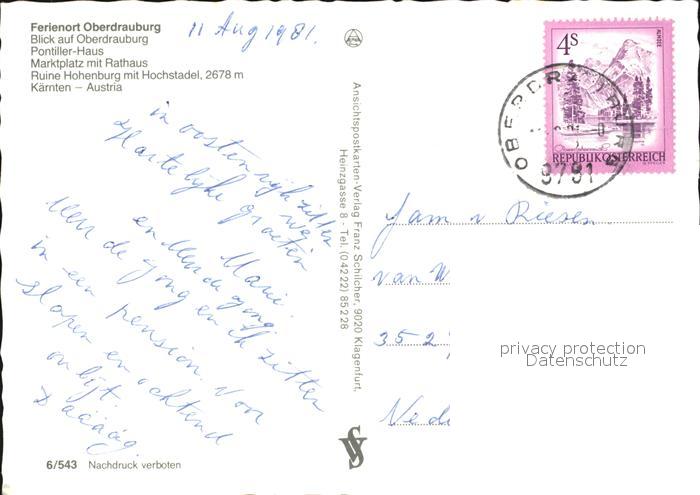 Ferienort Oberdrauburg
Blick auf Oberdrauburg
Pontiller-Haus
Marktplatz mit Rathaus
Ruine Hohenburg mit Hochstadel, 2678 m
Kärnten – Austria
11 Aug 1981.
in oostenrijk zitten wei
Hartelijke groeten
Marie.
en Men de Jong
Men de Jong en ik zitten
in een pension. Voor
slapen en ochtend
ontbijt.
Dááááág.
6/543 Nachdruck verboten
Ansichtspostkarten-Verlag Franz Schilcher, 9020 Klagenfurt,
Heinzgasse 8 - Tel. (0 42 22) 85 2 28
4S
ALMSEE
REPUBLIK ÖSTERREICH
OBERDRAUBURG
9781
Fam v Riesen
van W
352
Ned
privacy protection
Datenschutz